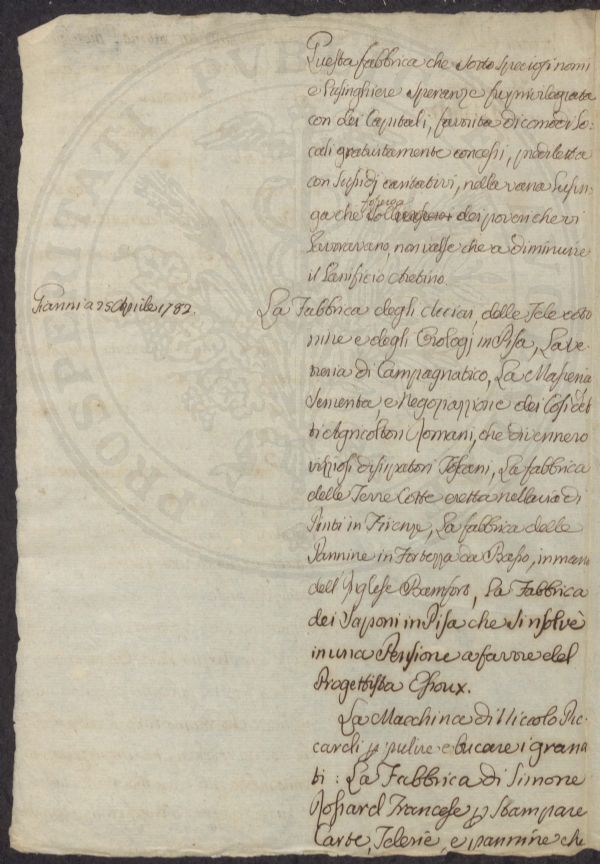 Questa fabbrica che sotto speciosi nomi
e lusinghiere speranze fu privilegiata
con dei Capitali, favorita di comodi lo-
cali gratuitamente concessi, protetta
con sussidj caritativi, nella vana lusin-
ga che fosse di sollievo dei poveri che vi
lavoravano, non valse che a diminuire
il Lanificio Aretino.
Gianni a 25 Aprile 1782.
La Fabbrica degli Acciai, delle Tele coto
nine e degli Orologj in Pisa, La Ve-
treria di Campagnatico, La
Sementa, e Negoziazione dei Cosi det
ti Agricoltori Romani, che divennero
viziosi dissipatori Toscani, La fabbrica
delle Terre Cotte eretta nella via di
Pinti in Firenze, La fabbrica delle
Pannine in Fortezza da Basso, in mano
dell'Inglese Bamford, La Fabbrica
dei Saponi in Pisa che si risolvè
in una Pensione a favore del
Progettista
La Macchina di Niccolò Ric
cardi p pulire e bucare i grana
ti: La Fabbrica di Simone
Francese p Stampare
Carte, Telerie, e pannine che
PROSPERITATI PUBLICAE